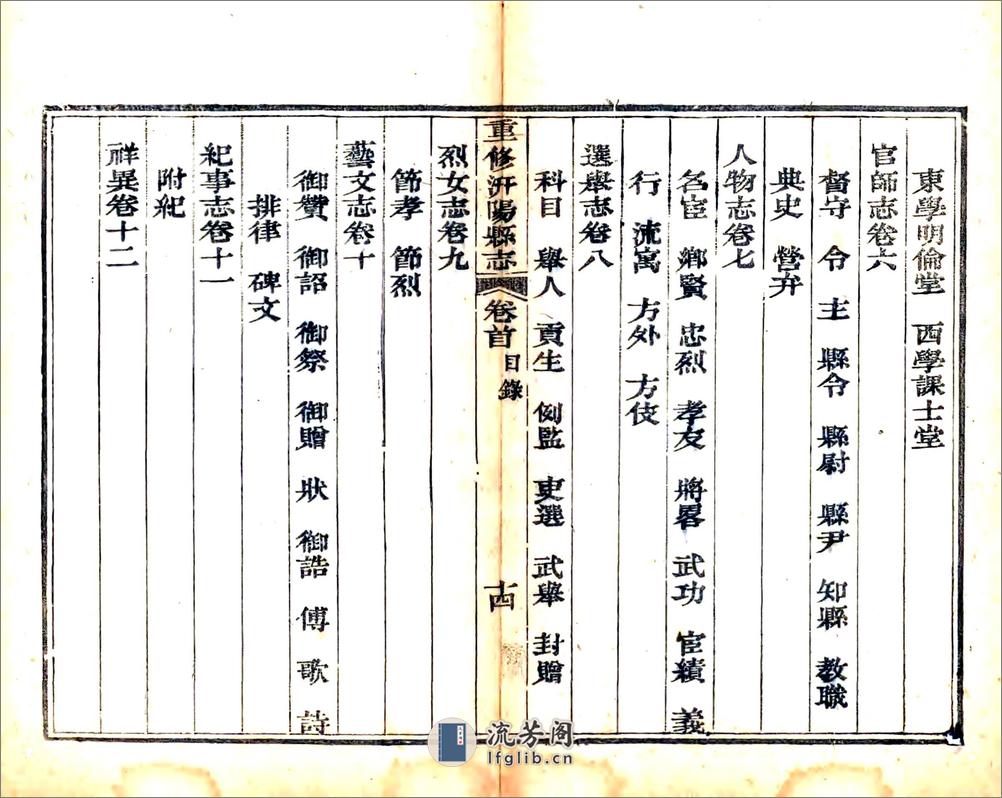 東學明倫堂 西學課士堂
官師志卷六
督守 令 主 縣令 縣尉 縣尹 知縣 教職
典史 營弁
人物志卷七
名宦 鄉賢 忠烈 孝友 將畧 武功 宦績 義
行 流寓 方外 方伎
選舉志卷八
科目 舉人 貢生 例監 吏選 武舉 封贈
重修汧陽縣志 卷首 目錄 十四
烈女志卷九
節孝 節烈
藝文志卷十
御贊 御詔 御祭 御贈 狀 御誥 傳 歌 詩
排律 碑文
紀事志卷十一
附紀
祥異卷十二
流芳阁
lfglib.cn